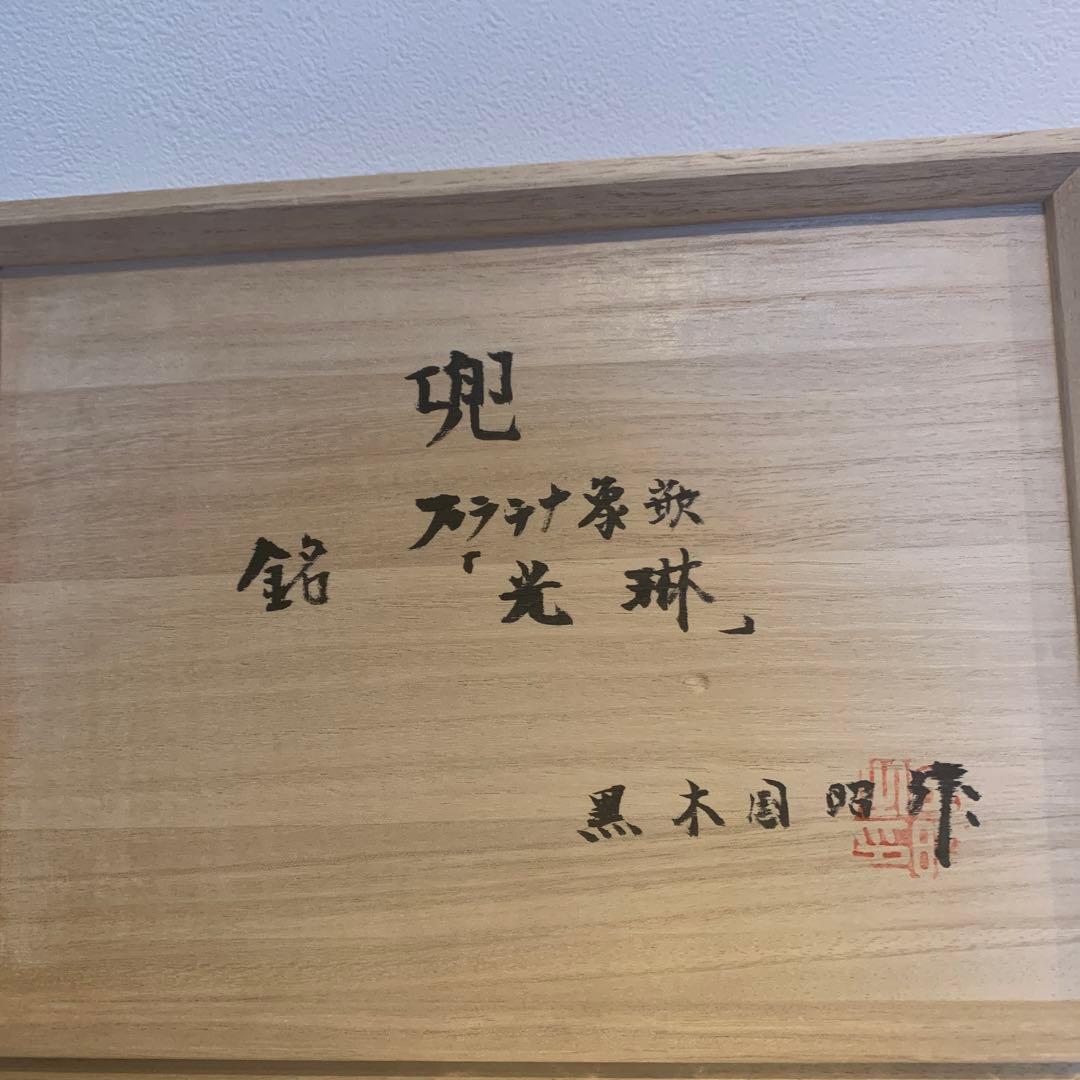 兜
プラチナ象嵌
銘「光琳」
黒木国昭作